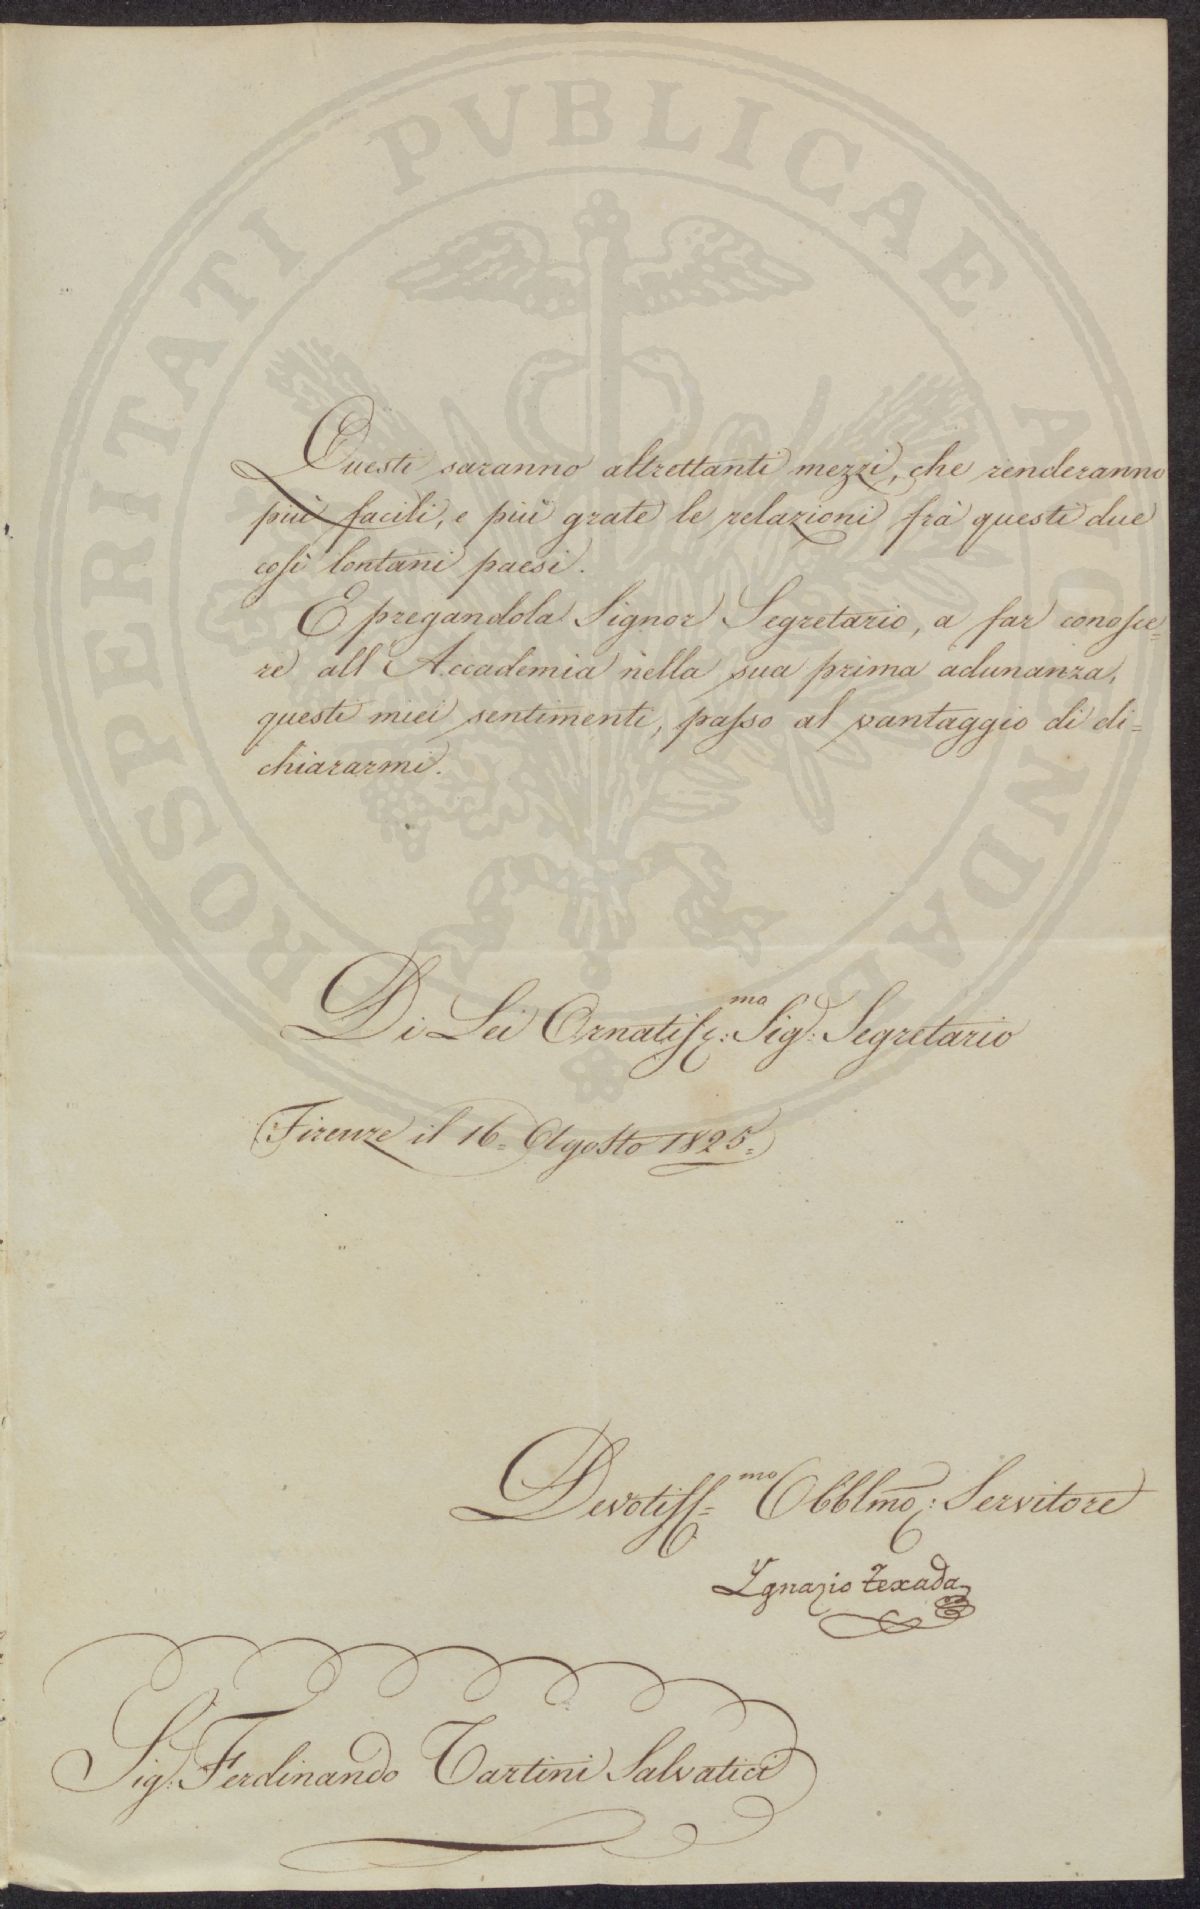 Questi saranno altrettanti mezzi, che renderanno
più facili, e più grate le relazioni frà questi due
così lontani paesi.
E pregandola Signor Segretario, a far conosce=
re all'Accademia nella sua prima adunanza,
questi miei sentimenti, passo al vantaggio di di=
chiararmi.
Di Lei Ornatiss:mo Sig: Segretario
Firenze il 16= Agosto 1825=
Devotiss=mo Obblmo: Servitore
Ygnazio Texada
Sig: Ferdinando Tartini Salvatici
PROSPERITATI PVBLICAE AVGENDAE